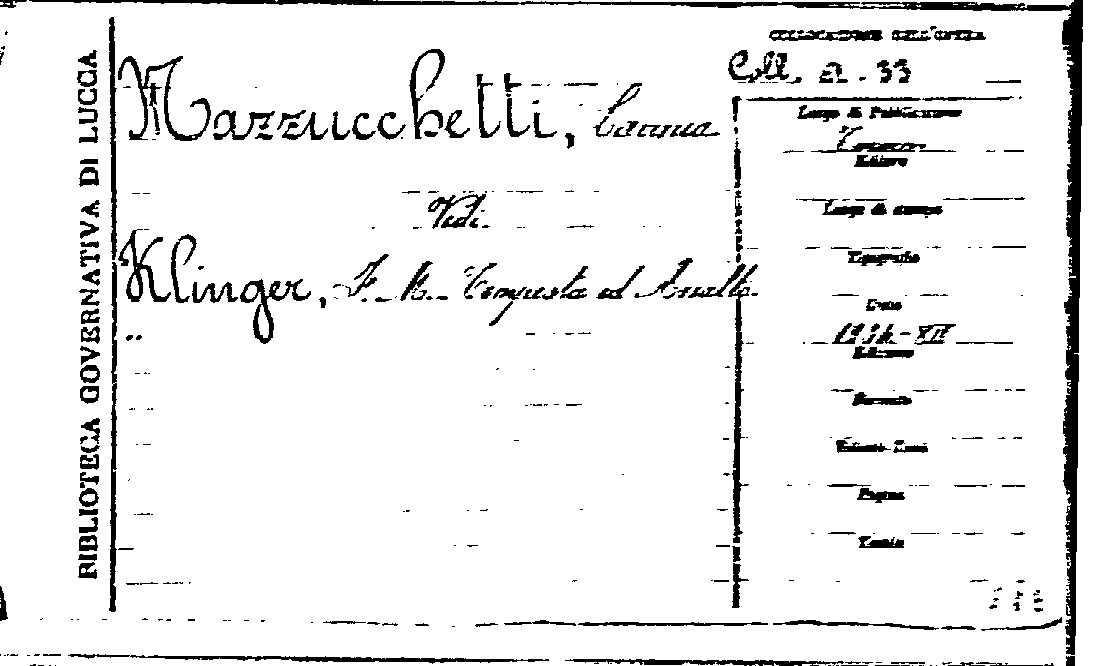 BIBLIOTECA GOVERNATIVA DI LUCCA
COLLOCAZIONE DELL'OPERA
Coll. a. 33
Mazzucchetti, Lavinia
Vedi
Klinger, F. M. Tempesta ed Assalto.
"
Luogo di Pubblicazione
Editore
Luogo di stampa
Tipografia
Data
1934-XII
Edizione
Formato
Volumi-Tomi
Pagine
Tavole